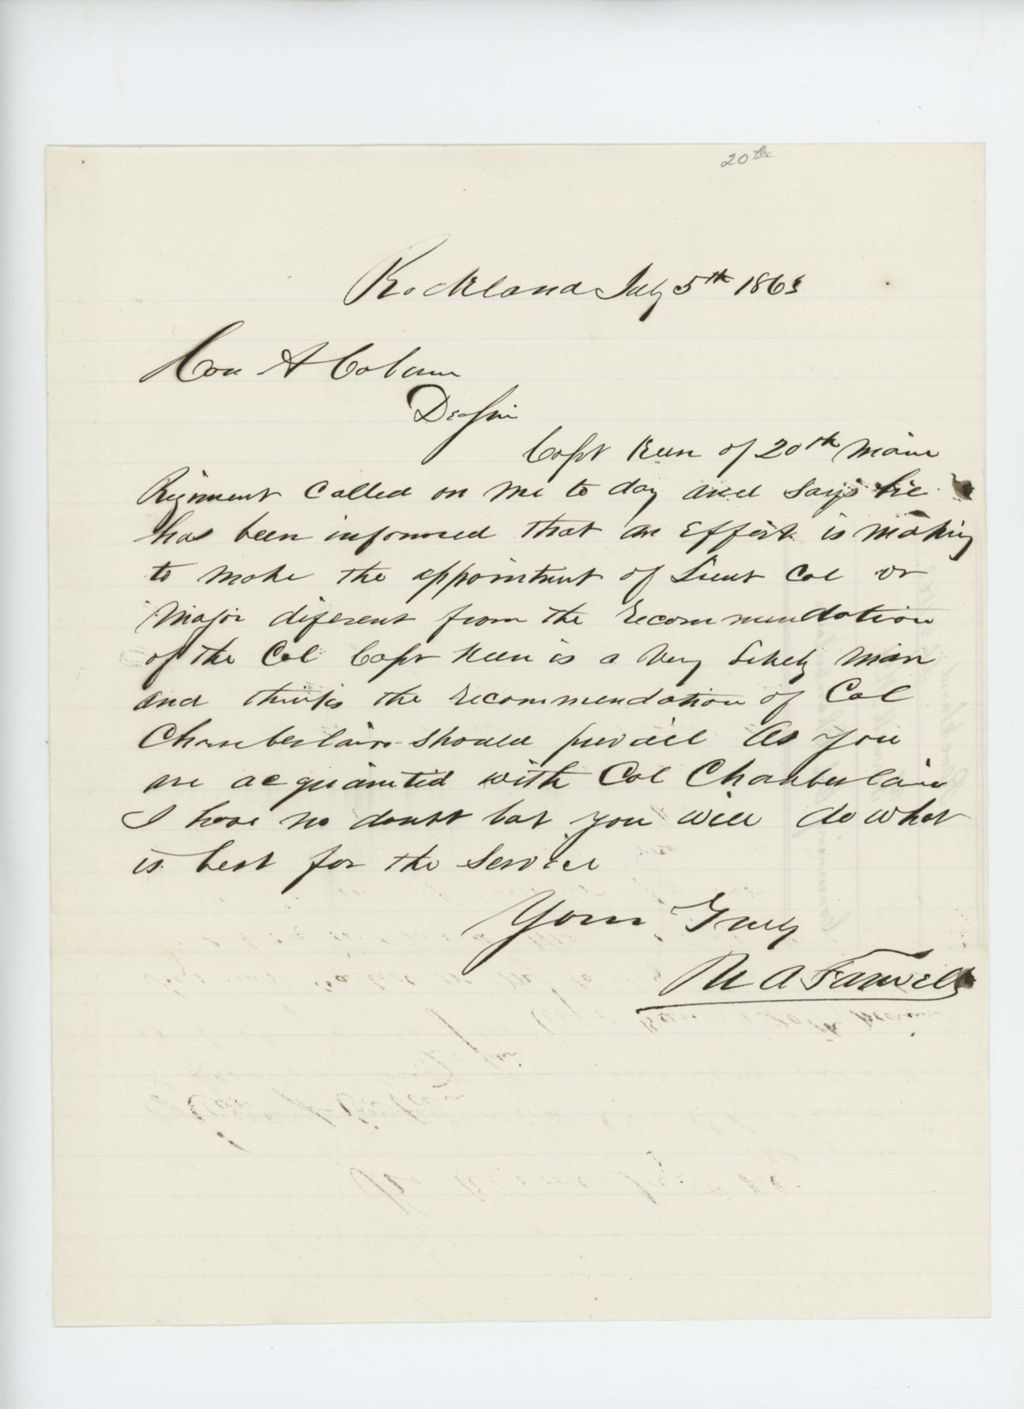 20th
Rockland July 5th 1863
Hon A Coburn
Dr Sir
Capt Keen of 20th Maine
Regiment called on me to day and says he
has been informed that an Effort is making
to make the appointment of Lieut Col or
Major diferent from the recommendation
of the Col Capt Keen is a very likely man
and thinks the recommendation of Col
Chamberlain should prevail As you
are acquainted with Col Chamberlain
I have no doubt but you will do what
is best for the Service
Yours Truly
N A Farwell